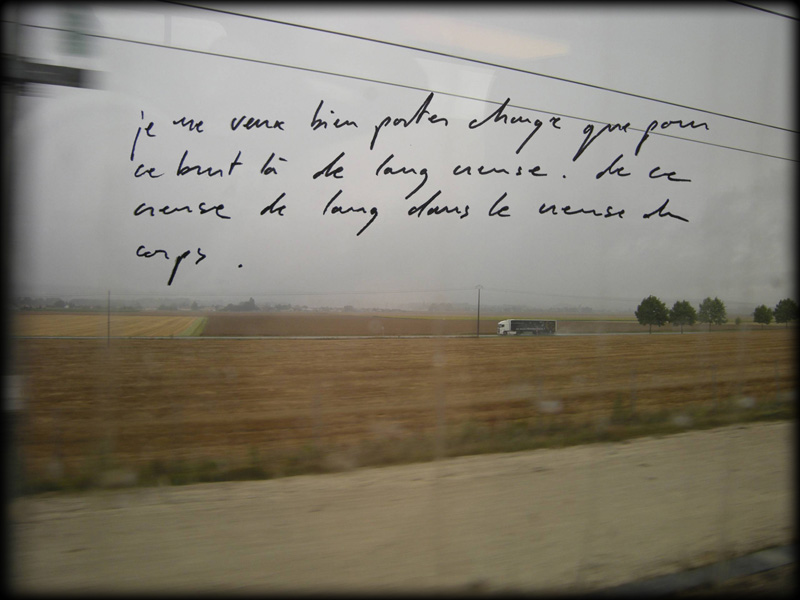 je me veux bien porter charge que pour
ce bruit là de lang creuse. de ce
creuse de lang dans le creuse du
corps.